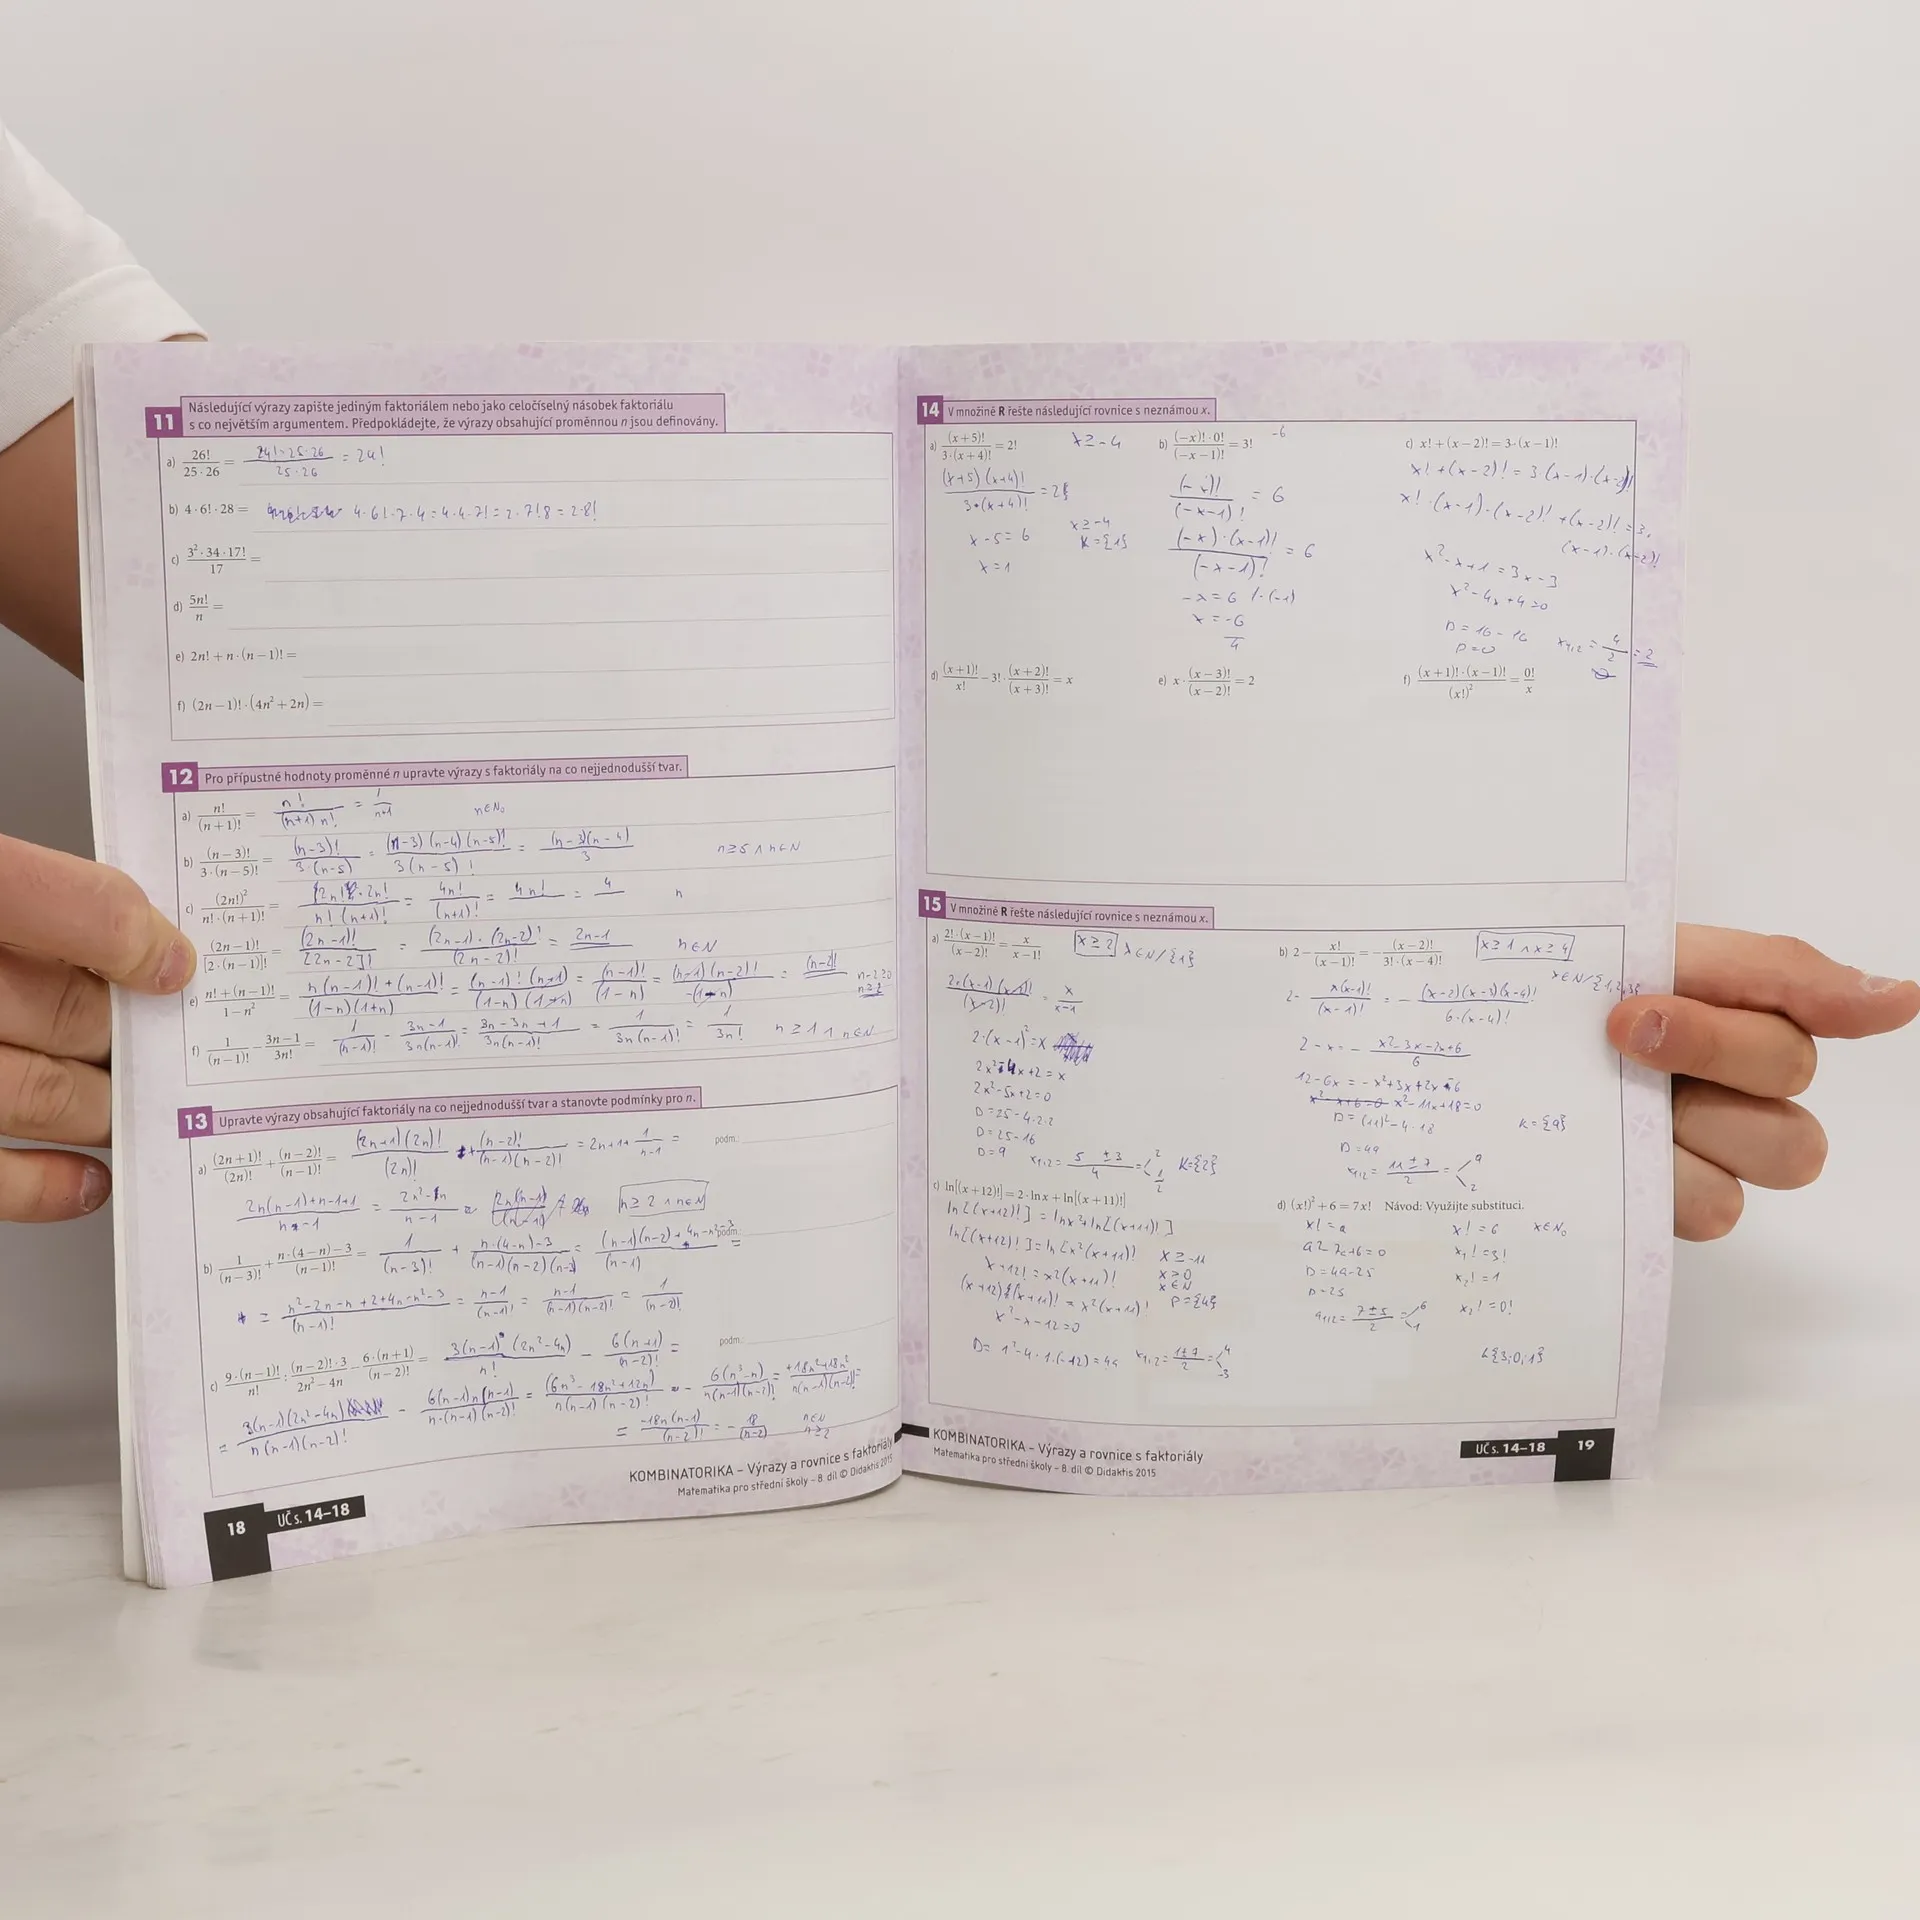 11 Následující výrazy zapište jediným faktoriálem nebo jako celočíselný násobek faktoriálu
s co největším argumentem. Předpokládejte, že výrazy obsahující proměnnou n jsou definovány.
a) 26!/(25·26) = (24!·25·26)/(25·26) = 24!
b) 4·6!·28 = 4·6!·7·4 = 4·4·7! = 2·7!8 = 2·8!
c) (3²·34·17!)/17 =
d) 5n!/n =
e) 2n! + n·(n−1)! =
f) (2n−1)!·(4n²+2n) =
12 Pro přípustné hodnoty proměnné n upravte výrazy s faktoriály na co nejjednodušší tvar.
a) n!/(n+1)! = n!/((n+1) n!) = 1/(n+1) n∈N₀
b) (n−3)!/(3·(n−5)!) = (n−3)!/(3·(n−5) = ((n−3)(n−4)(n−5)!)/(3(n−5)!) = ((n−3)(n−4))/3 n≥5 ∧ n∈N
c) (2n!)²/(n!·(n+1)!) = = 4n!/(n+1)! = 4n! = 4 n
(2n−1)!/[2·(n−1)]! = (2n−1)!/[2n−2]! = ((2n−1)·(2n−2)!)/(2n−2)! = 2n−1 n∈N
e) (n!+(n−1)!)/(1−n²) = (n(n−1)!+(n−1)!)/((1−n)(1+n)) = ((n−1)!(n+1))/((1−n)(1+n)) = (n−1)!/(1−n) = = (n−2)! n−2≥0
n≥2
f) 1/(n−1)! − (3n−1)/3n! = 1/(n−1)! − (3n−1)/(3n(n−1)!) = (3n−3n+1)/(3n(n−1)!) = 1/(3n(n−1)!) = 1/3n! n≥1 ∧ n∈N
13 Upravte výrazy obsahující faktoriály na co nejjednodušší tvar a stanovte podmínky pro n.
a) (2n+1)!/(2n)! + (n−2)!/(n−1)! = ((2n+1)(2n)!)/(2n)! + (n−2)!/((n−1)(n−2)!) = 2n+1+1/(n−1) = podm.:
n≥2 ∧ n∈N
b) 1/(n−3)! + (n·(4−n)−3)/(n−1)! = 1/(n−3)! + (n·(4−n)−3)/((n−1)(n−2)(n−3) = podm.:
= (n²−2n−n+2+4n−n²−3)/(n−1)! = (n−1)/(n−1)! = (n−1)/((n−1)(n−2)!) = 1/(n−2)!
c) 9·(n−1)!/n! : (n−2)!·3/(2n²−4n) − 6·(n+1)/(n−2)! = (3(n−1)(2n²−4n))/n! − 6(n+1)/(n−2)! = podm.:
= −18n(n−1)/(n−2)! = −18/(n−2) n∈N
n≥2
KOMBINATORIKA – Výrazy a rovnice s faktoriály
Matematika pro střední školy – 8. díl © Didaktis 2015
18 UČ s. 14–18
14 V množině R řešte následující rovnice s neznámou x.
a) (x+5)!/(3·(x+4)!) = 2! x≥−4
((x+5)(x+4)!)/(3·(x+4)!) = 2
x−5=6 x≥−4
x=1 K={1}
b) (−x)!·0!/(−x−1)! = 3! −6
(−x)!/(−x−1)! = 6
((−x)·(x−1)!)/(−x−1)! = 6
−x=6 /·(−1)
x=−6
c) x!+(x−2)! = 3·(x−1)!
x!+(x−2)! = 3(x−1)·(x−2)!
x!·(x−1)·(x−2)!+(x−2)! = 3·
(x−1)·(x−2)!
x²−x+1=3x−3
x²−4x+4=0
D=16−16
D=0 x₁,₂=4/2=2
d) (x+1)!/x! − 3!·(x+2)!/(x+3)! = x
e) x·(x−3)!/(x−2)! = 2
f) (x+1)!·(x−1)!/(x!)² = 0!/x
15 V množině R řešte následující rovnice s neznámou x.
a) 2!·(x−1)!/(x−2)! = x/(x−1)! x≥2 x∈N/{1}
(2·(x−1)(x−1)!)/(x−2)! = x/(x−1)
2·(x−1)²=x
2x²−4x+2=x
2x²−5x+2=0
D=25−4·2·2
D=25−16
D=9 x₁,₂=(5±3)/4= 2 1/2 K={2}
b) 2−x!/(x−1)! = −(x−2)!/(3!·(x−4)!) x≥1 ∧ x≥4
x∈N/{1,2,3}
2−x(x−1)!/(x−1)! = −((x−2)(x−3)(x−4)!)/(6·(x−4)!)
2−x=−(x²−3x−2x+6)/6
12−6x=−x²+3x+2x−6
x²−11x+18=0
D=(11)²−4·18 K={9}
D=49
x₁,₂=(11±7)/2= 9 2
c) ln[(x+12)!] = 2·lnx + ln[(x+11)!]
ln[(x+12)!] = lnx²+ln[(x+11)!]
ln[(x+12)!]=ln[x²(x+11)!] x≥−11
x+12!=x²(x+11)! x≥0
x∈N
(x+12)(x+11)!=x²(x+11)! P={4}
x²−x−12=0
D=1²−4·1·(−12)=49 x₁,₂=(1±7)/2= 4 −3
d) (x!)²+6=7x! Návod: Využijte substituci.
x!=a x!=6 x∈N₀
a²−7a+6=0 x₁!=3!
D=49−25 x₂!=1
D=25
a₁,₂=(7±5)/2= 6 1 x₂!=0!
{3;0;1}
KOMBINATORIKA – Výrazy a rovnice s faktoriály
Matematika pro střední školy – 8. díl © Didaktis 2015
UČ s. 14–18 19